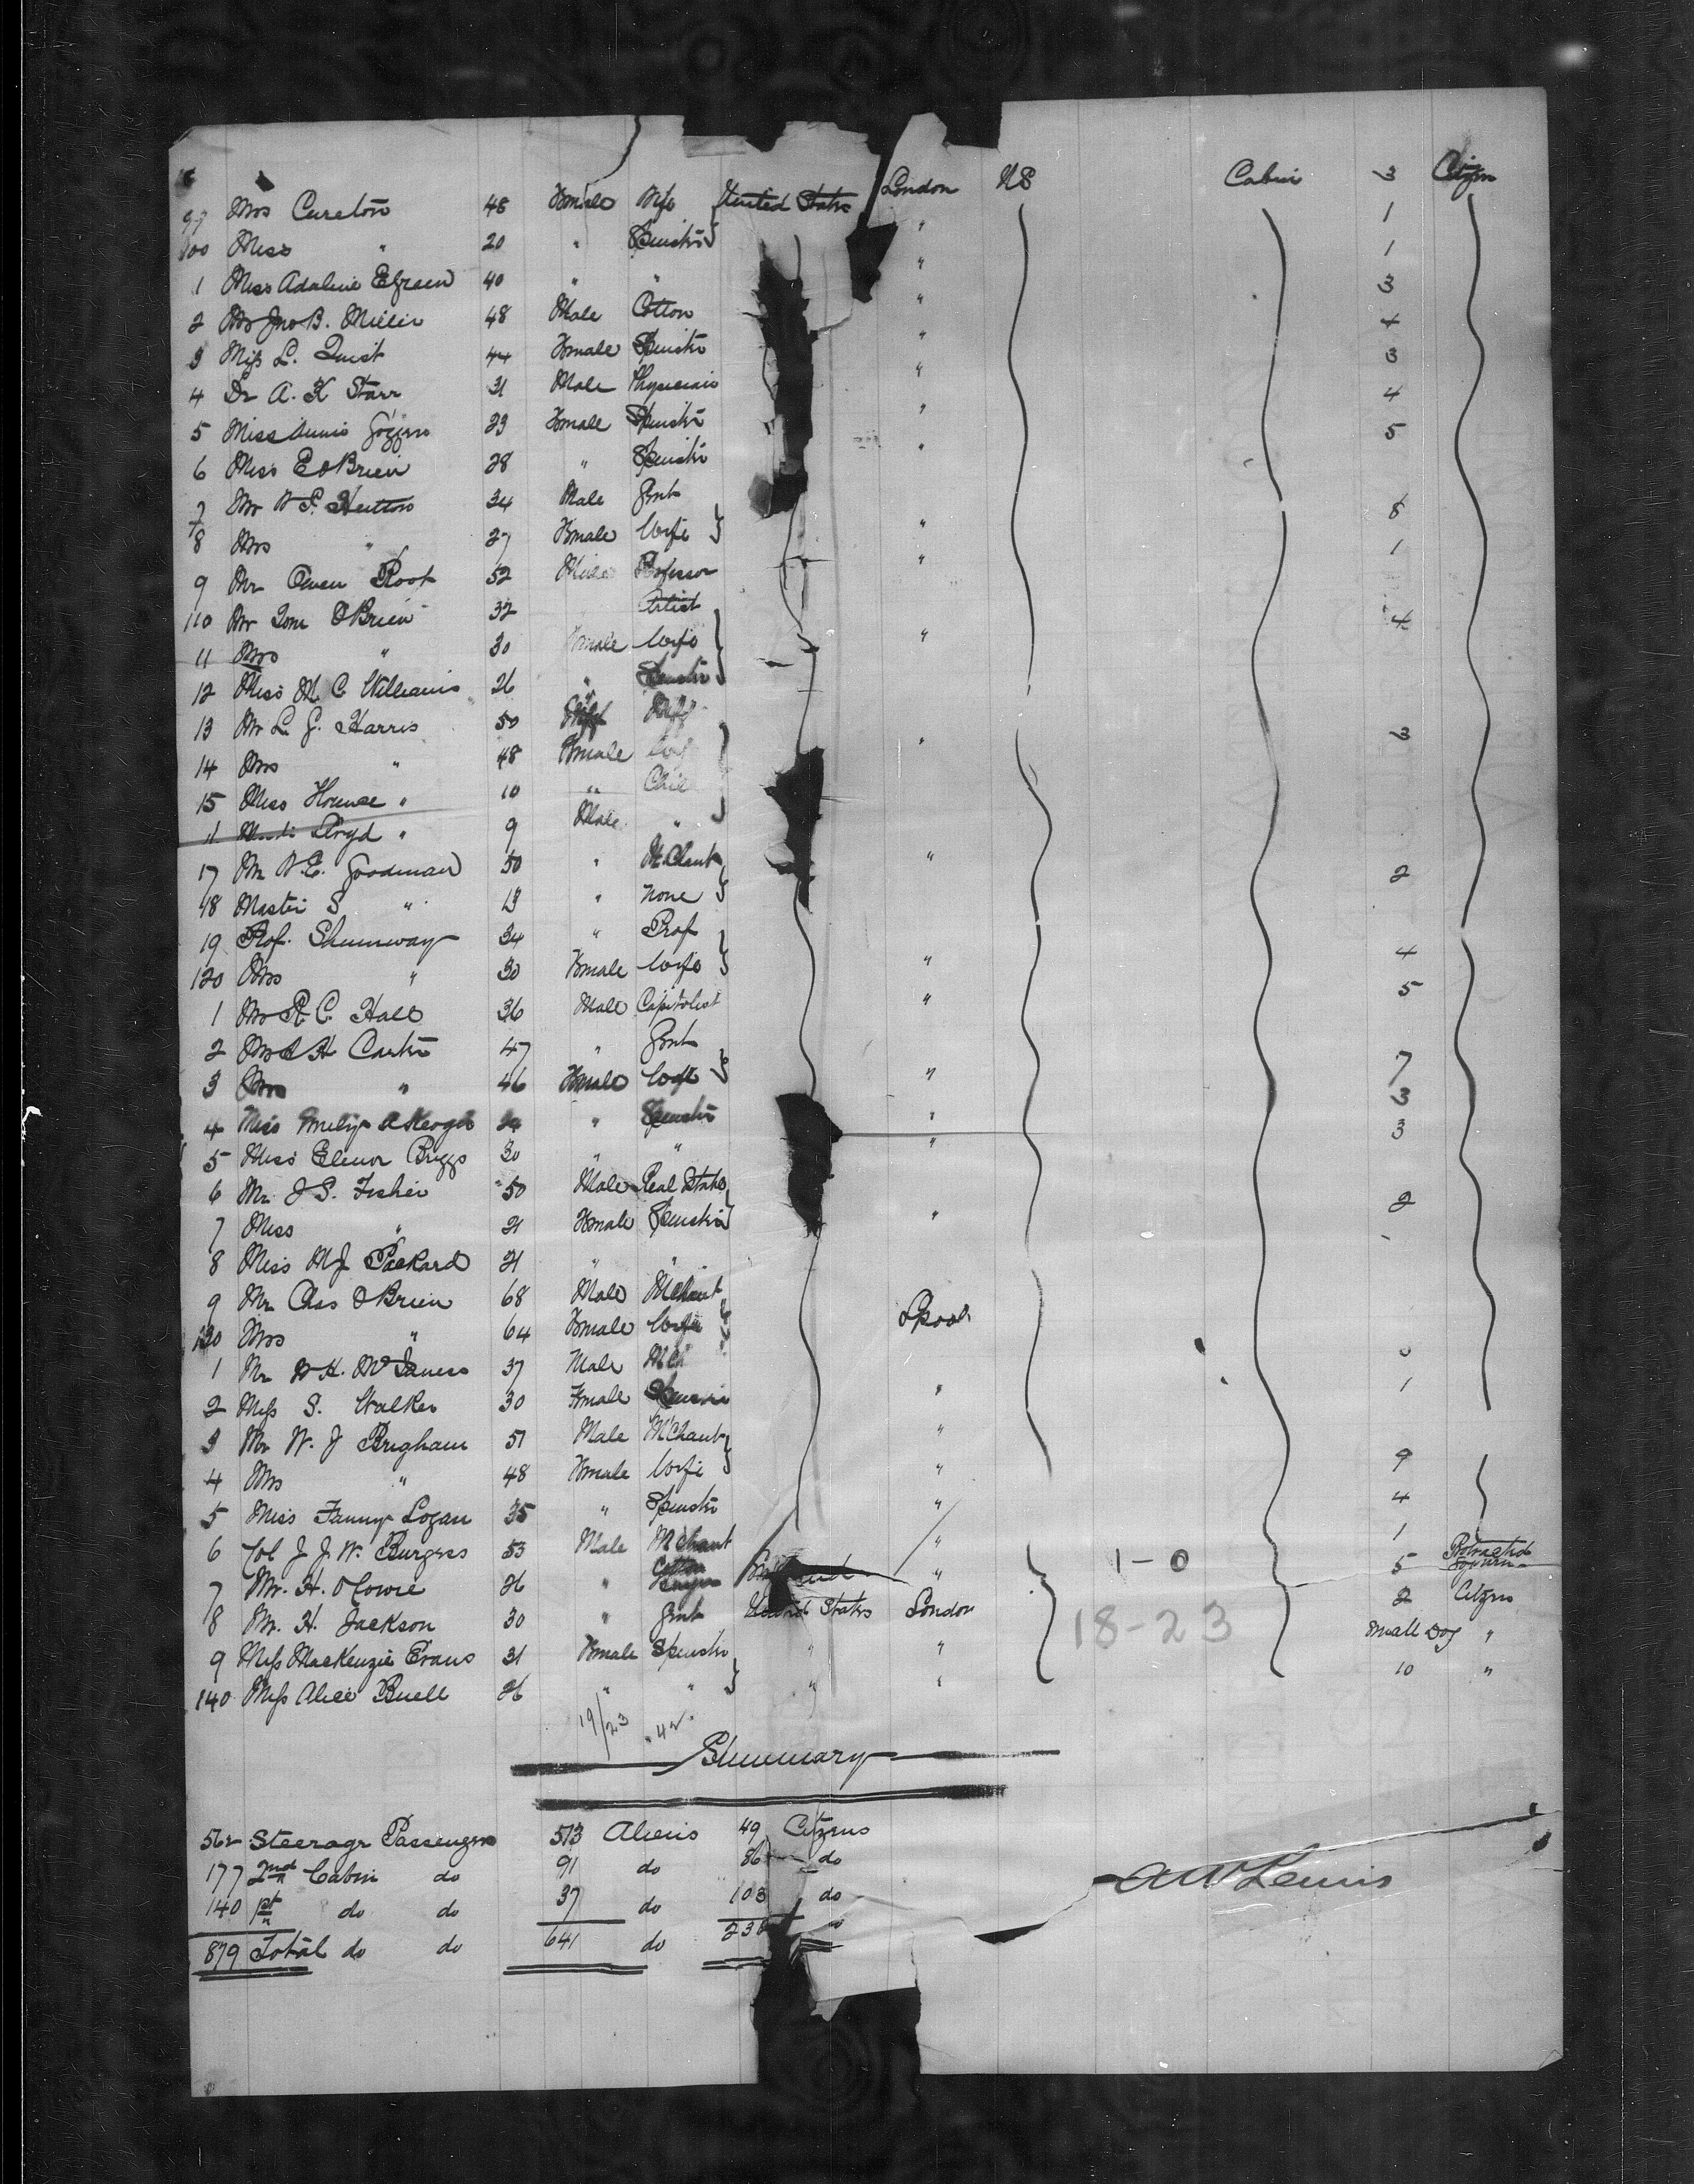 99 Mrs Cureton 48 Female Wife United States London US Cabin 3 Citizen
100 Miss " 20 " Spinster " 1
1 Miss Adaline 40 " " " 1
2 Mr Jno B. Miller 48 Male Cotton " 3
3 Miss L. Quist 44 Female Spinster " 4
4 Dr A. K Starr 31 Male Physician " 3
5 Miss 23 Female Spinster " 4
6 Miss E O'Brien 28 " Spinster " 5
7 Mr W S. Hutton 34 Male Gent
8 Mrs " 27 Female Wife " 8
9 Mr Owen Root 52 Male Professor " 1
110 Mr Tom O'Brien 32 Artist
11 Mrs " 30 Female Wife " 4
12 Miss M. C. Williams 26 " Spinster
13 Mr L. G. Harris 50
14 Mrs " 48 Female " 3
15 Miss " 10 "
" 9 Male "
17 Mr W. E. Goodman 50 " M'Chant "
18 Master S " 13 " None 2
19 Prof. Shumway 34 " Prof
120 Mrs " 30 Female Wife " 4
1 Mr R. C. Hall 36 Male Capitolist " 5
2 Mr A H Carter 47 " Gent
3 Mrs " 46 Female Wife " 7
4 Miss Emily A Keogh 24 " Spinster " 3
5 Miss Elenor Briggs 30 " " " 3
6 Mr J S. Fisher 50 Male Real State
7 Miss " 21 Female Spinster " 2
8 Miss M J Packard 21 " "
9 Mr Chas O'Brien 68 Male M'Chant
130 Mrs " 64 Female Wife Lpool
1 Mr W H. 37 Male
2 Miss S. Walker 30 Female Spinster " 1
3 Mr W. J Brigham 51 Male M'Chant "
4 Mrs " 48 Female Wife " 9
5 Miss Fanny Logan 35 " Spinster " 4
6 Col J. J. W. Burgess 53 Male M'Chant " 1
7 Mr. H. 26 " Cotton Buyer " 1 - 0 5 Protracted Sojourn
8 Mr. H. Jackson 30 " Gent United States London 2 Citizen
9 Miss MacKenzie Evans 31 Female Spinster " " 18 - 23 Small Dog "
140 Miss Alice Buell 26 " " " " 10 "
19/23
Summary
562 Steerage Passengers 513 Aliens 49 Citizens
177 2nd Cabin do 91 do 86 do
140 1st do do 37 do 103 do
879 Total do do 641 do
A W Lewis